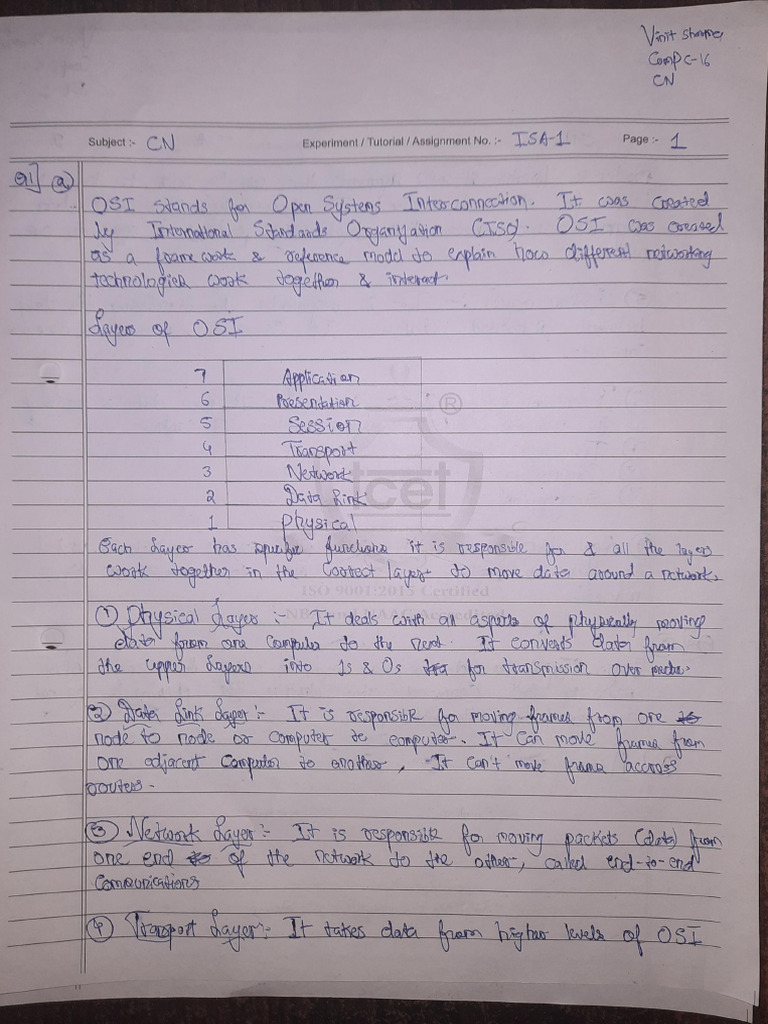 Vinit Sharma
Comp C-16
CN
Subject :- CN Experiment / Tutorial / Assignment No. :- ISA-1 Page :- 1
Q1] (a)
OSI stands for Open Systems Interconnection. It was created
by International Standards Organization (ISO). OSI was created
as a frame work & reference model to explain how different networking
technologies work together & interact.
Layers of OSI
7 Application
6 Presentation
®
5 Session
4 Transport
3 Network
tcet
2 Data Link
1 Physical
Each Layer has specific functions it is responsible for & all the layers
work together in the correct layer to move data around a network.
ISO 9001:2015 Certified
① Physical Layer :- It deals with all aspects of physically moving
data from one computer to the next. It converts data from
the upper layers into 1s & 0s for transmission over media.
② Data Link Layer :- It is responsible for moving frames from one
node to node or computer to computer. It can move frames from
one adjacent computer to another, It can't move frame accross
routers.
③ Network Layer :- It is responsible for moving packets (data) from
one end of the network to the other, called end-to-end
communications
④ Transport Layer :- It takes data from higher levels of OSI